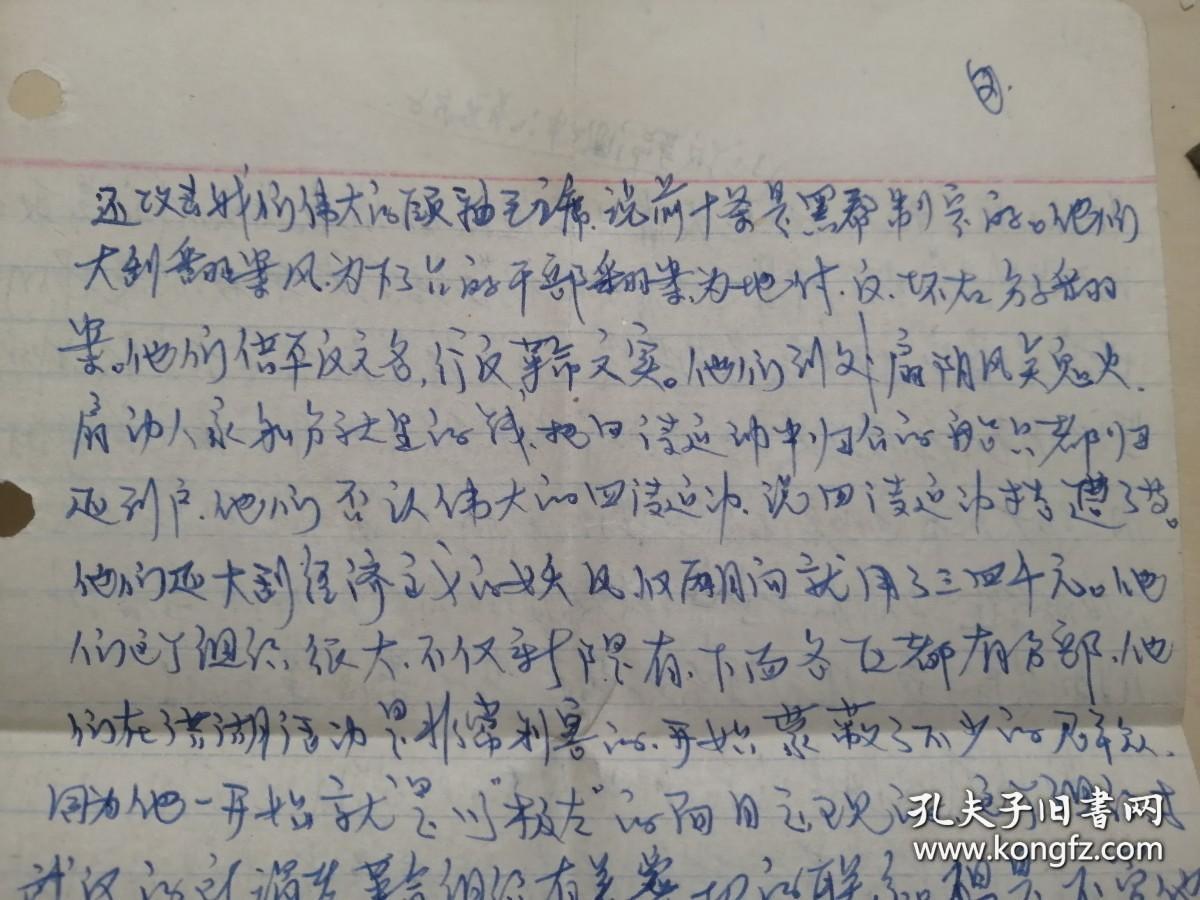 ②.
还攻击我们伟大的领袖毛主席.说前十条是黑帮制定的。他们
大刮翻案风.为下了台的干部翻案.为地付.反.坏右分子翻的
案。他们借平反之名,行反革命之实。他们到处扇阴风点鬼火.
扇动人家分社里的钱.把四清运动中归公的都归
还到户.他们否认伟大的四清运动.说四清运动搞遭了。
他们还大刮经济主义的妖风仅两月间就用了三四千元。他
们这个组织.很大.不仅新隄有.下面各区都有分部.他
们在洪湖活动是非常利害的.开始蒙蔽了不少的群众.
因为他一开始就是以"极左"的面目出现的
武汉的革命组织有着密切的联系
孔夫子旧书网
www.kongfz.com